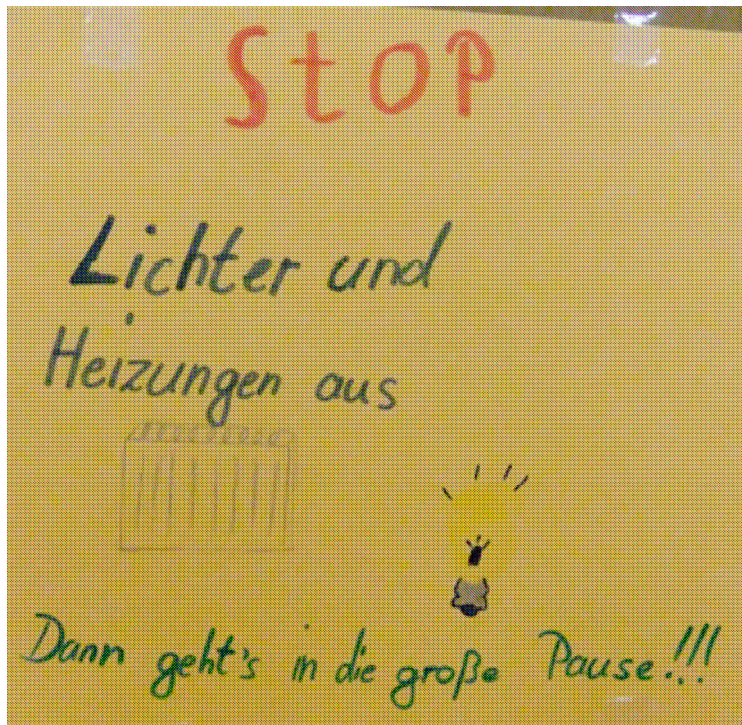 StOP
Lichter und
Heizungen aus
Dann geht's in die große Pause!!!